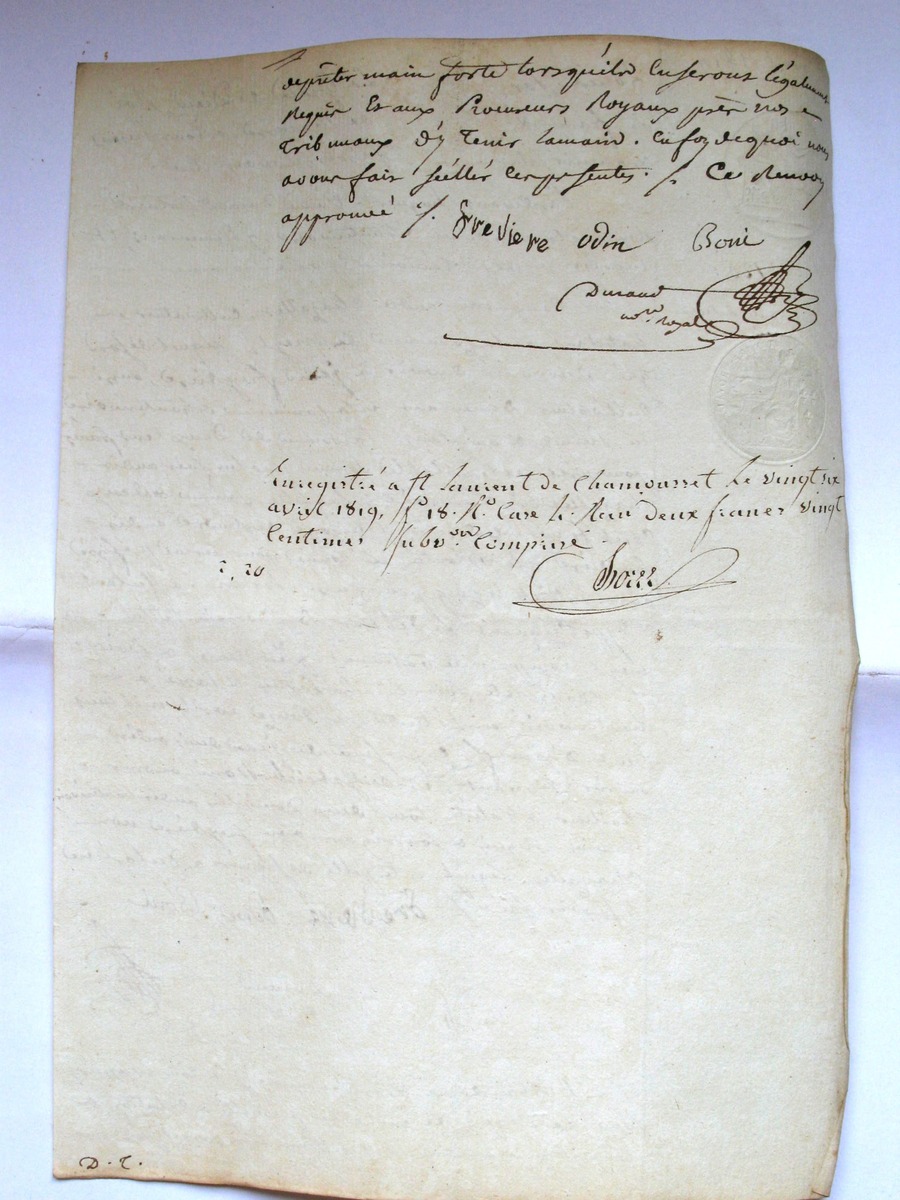 de preter main forte lorsquils enseront légalement
requis Et aux Procureurs Royaux près nos
Tribunaux d'y Tenir lamain. En foy de quoi nous
avons fait scéllér les présentes ./. Ce Renvoy
approuvé ./. freviere odin Boui
Durand
no.re royal
Enregistré a St Laurent de Chamousset Le vingt six
avril 1819, fo 18. Ro. Case 1. Recu deux francs vingt
Centimes Subv.on Comprise
2,20
D. T.